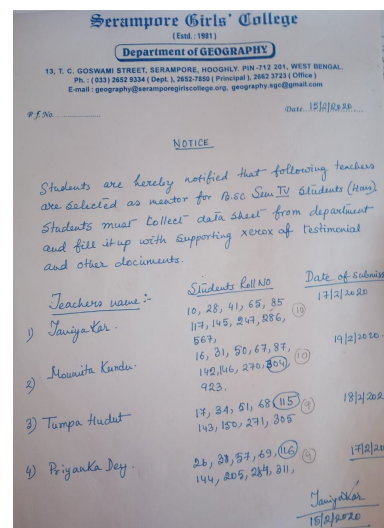 Serampore Girls' College
(Estd : 1981)
Department of GEOGRAPHY
13, T. C. GOSWAMI STREET, SERAMPORE, HOOGHLY. PIN-712 201, WEST BENGAL.
Ph. : (033) 2652 9334 (Dept.), 2652-7850 (Principal), 2662 3723 (Office)
E-mail : geography@seramporegirlscollege.org, geography.sgc@gmail.com
Date. 15/2/2020
NOTICE
Students are hereby notified that following teachers
are selected as mentor for B.Sc Sem IV Students (Hons).
Students must Collect data sheet from department
and fill it up with supporting xerox of testimonial
and other documents.
Teachers name :- Students Roll NO Date of Submiss
1) Taniya Kar. 10, 28, 41, 65, 85 17/2/2020
117, 145, 247, 286, (10)
567,
2) Mounita Kundu. 16, 31, 50, 67, 87, 19/2/2020
142, 146, 270, 304, (10)
923.
3) Tumpa Hudut 17, 34, 51, 68, 115 (9) 18/2/202
143, 150, 271, 305
4) Priyanka Dey. 26, 38, 57, 69, 116 (9) 17/2/20
144, 205, 284, 311,
Taniya Kar
15/2/2020